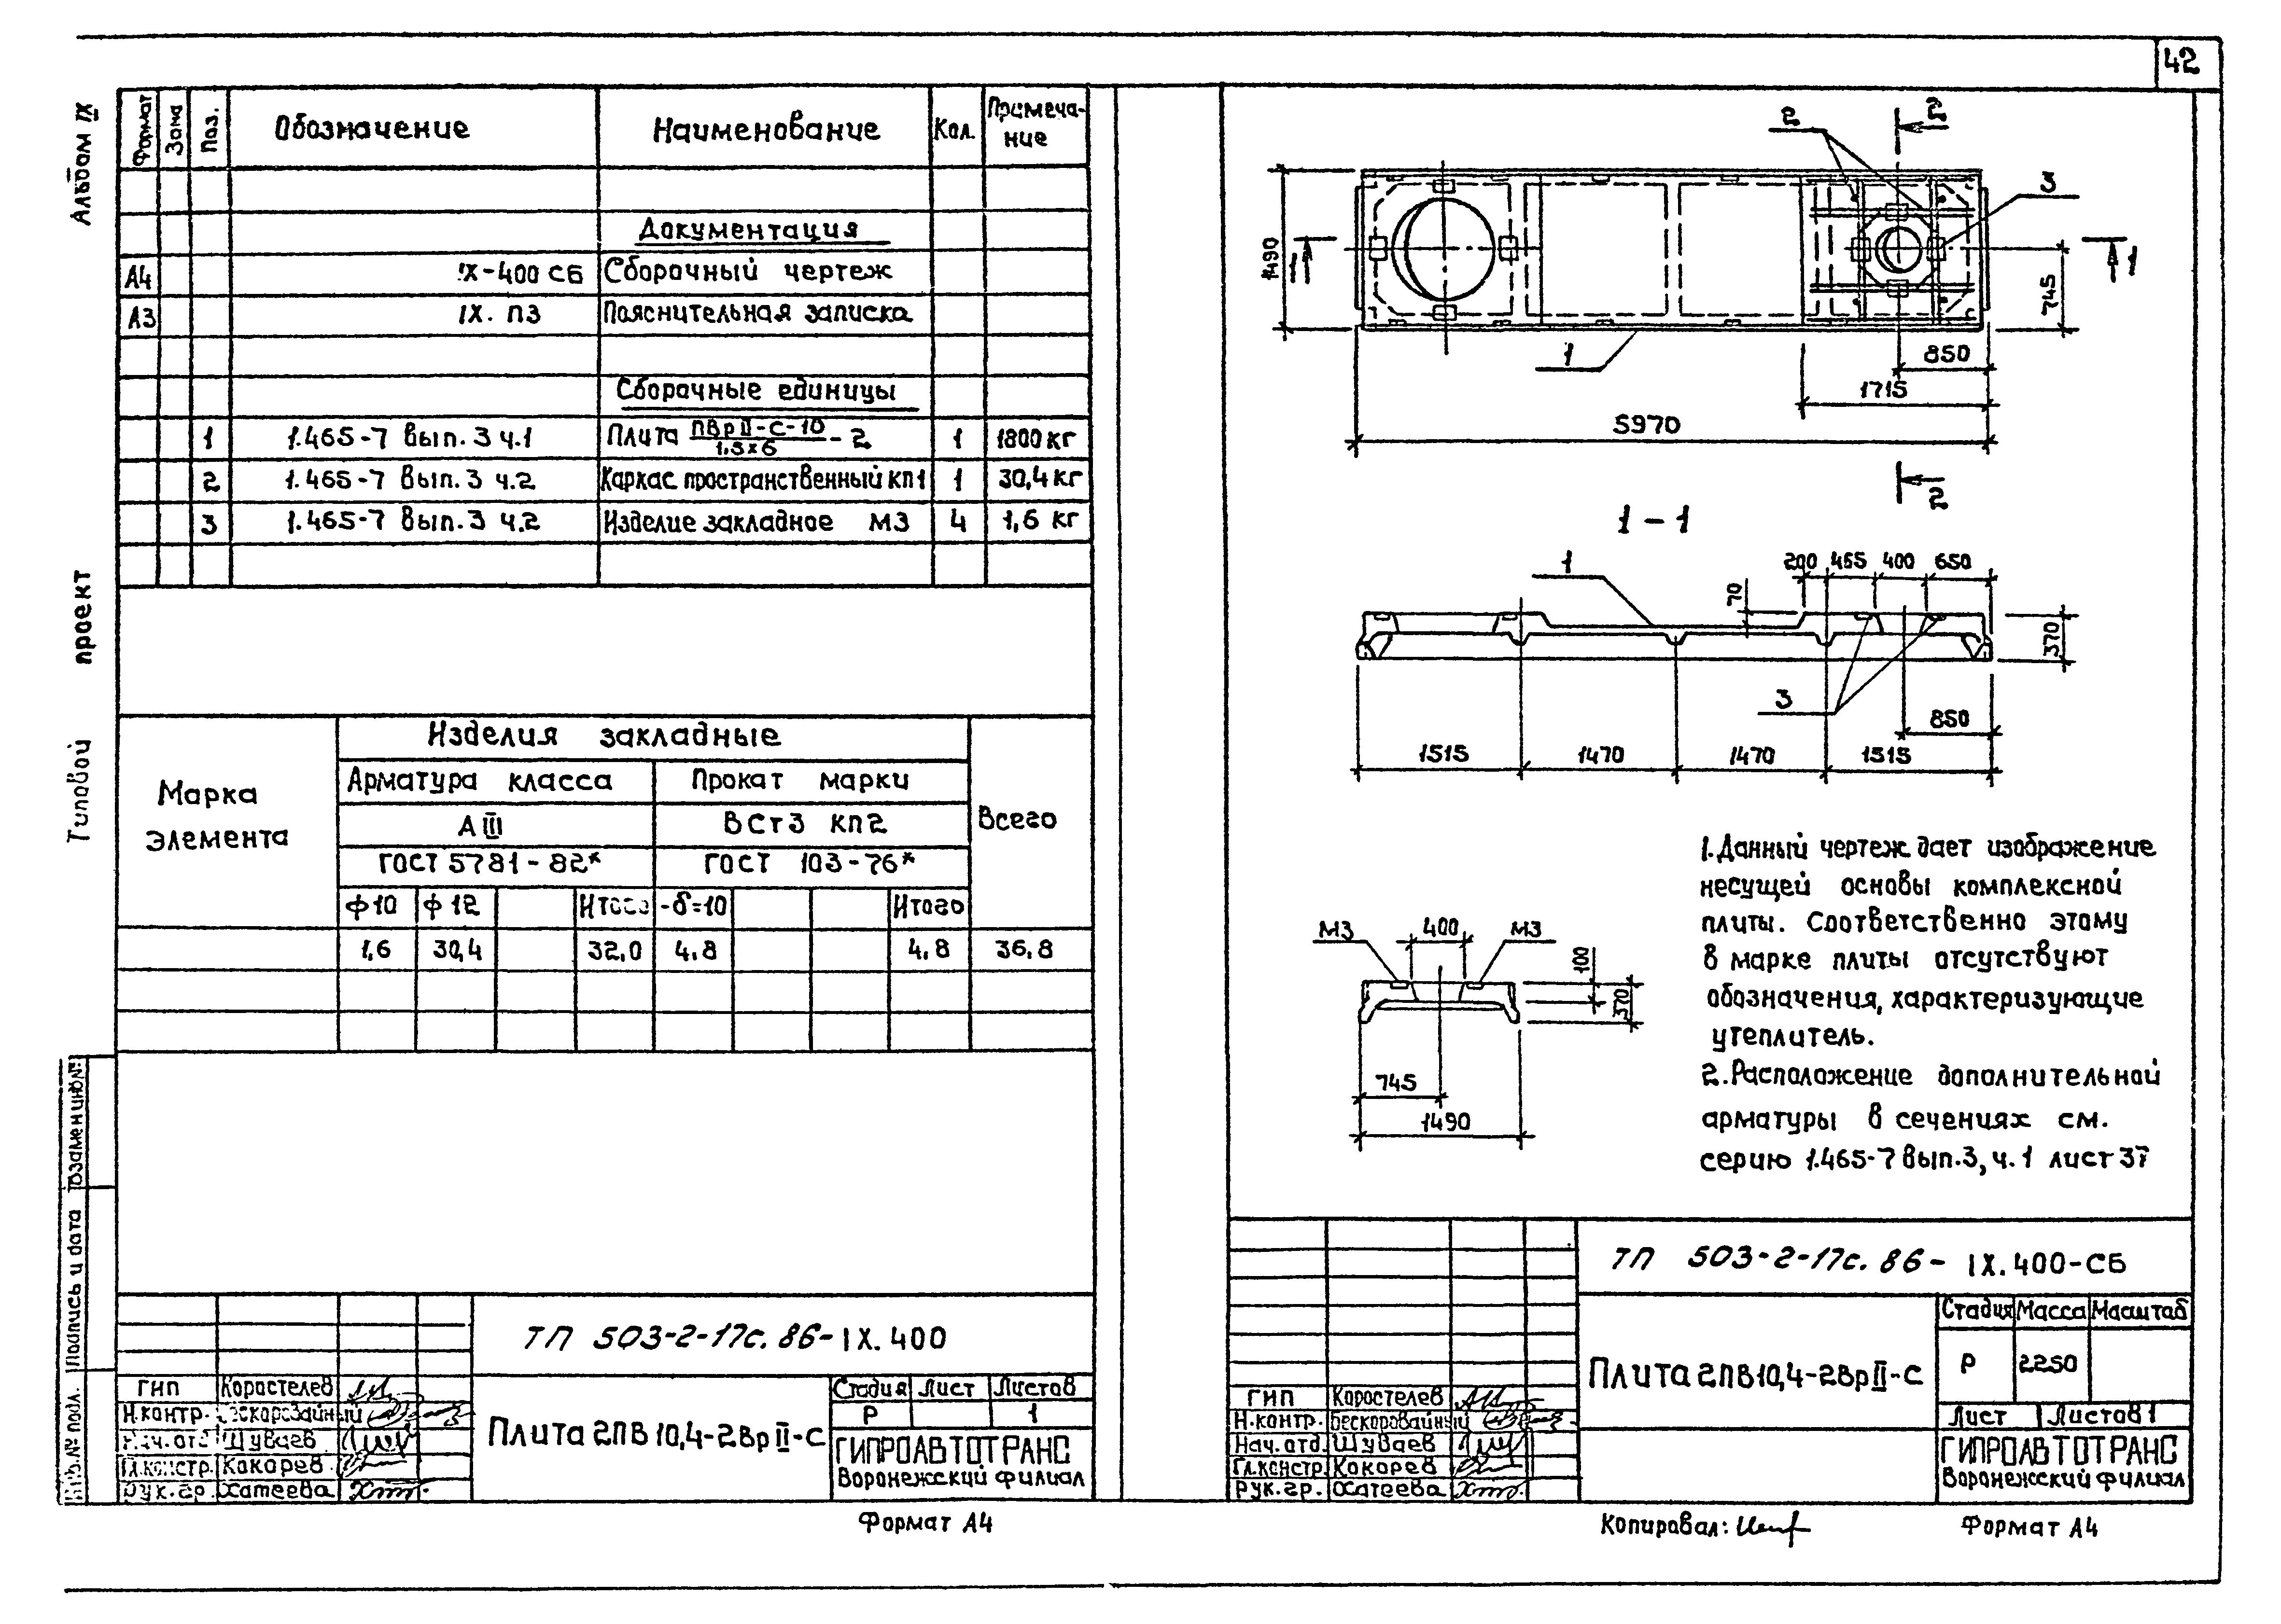 42
Альбом IX
Типовой проект
Формат Зона Поз. Обозначение Наименование Кол. Примеча-
ние
Документация
А4 IX-400 СБ Сборочный чертеж
А3 IX. ПЗ Пояснительная записка
Сборочные единицы
1 1.465-7 вып. 3 ч.1 Плита ПВрII-С-10 / 1,5х6 -2 1 1800 кг
2 1.465-7 вып. 3 ч.2 Каркас пространственный КП1 1 30,4 кг
3 1.465-7 вып. 3 ч.2 Изделие закладное М3 4 1,6 кг
Марка
элемента
Изделия закладные
Арматура класса Прокат марки
А III ВСт3 кп2 Всего
ГОСТ 5781-82* ГОСТ 103-76*
ф10 ф12 Итого -δ=10 Итого
1,6 30,4 32,0 4,8 4,8 36,8
Подпись и дата
ТП 503-2-17с. 86-IX.400
ГИП Коростелев
Н.контр. Бескоровайный
Нач.отд Шуваев
Гл.констр. Кокорев
Рук.гр. Хатеева
Плита 2ПВ10,4-2ВрII-С
Стадия Лист Листов
Р 1
ГИПРОАВТОТРАНС
Воронежский филиал
Формат А4
2 2
3
1490
1 1
745
1
850
1715
5970
2
1-1
1 200 455 400 650
70
370
3
850
1515 1470 1470 1515
М3 400 М3
100
370
745
1490
1.Данный чертеж дает изображение
несущей основы комплексной
плиты. Соответственно этому
в марке плиты отсутствуют
обозначения, характеризующие
утеплитель.
2.Расположение дополнительной
арматуры в сечениях см.
серию 1.465-7 вып.3, ч.1 лист 37
ТП 503-2-17с. 86- IX.400-СБ
Стадия Масса Масштаб
Плита 2ПВ10,4-2ВрII-С
Р 2250
ГИП Коростелев
Н.контр. Бескоровайный
Нач.отд. Шуваев
Гл.констр. Кокорев
Рук.гр. Хатеева
Лист Листов 1
ГИПРОАВТОТРАНС
Воронежский филиал
Копировал:
Формат А4